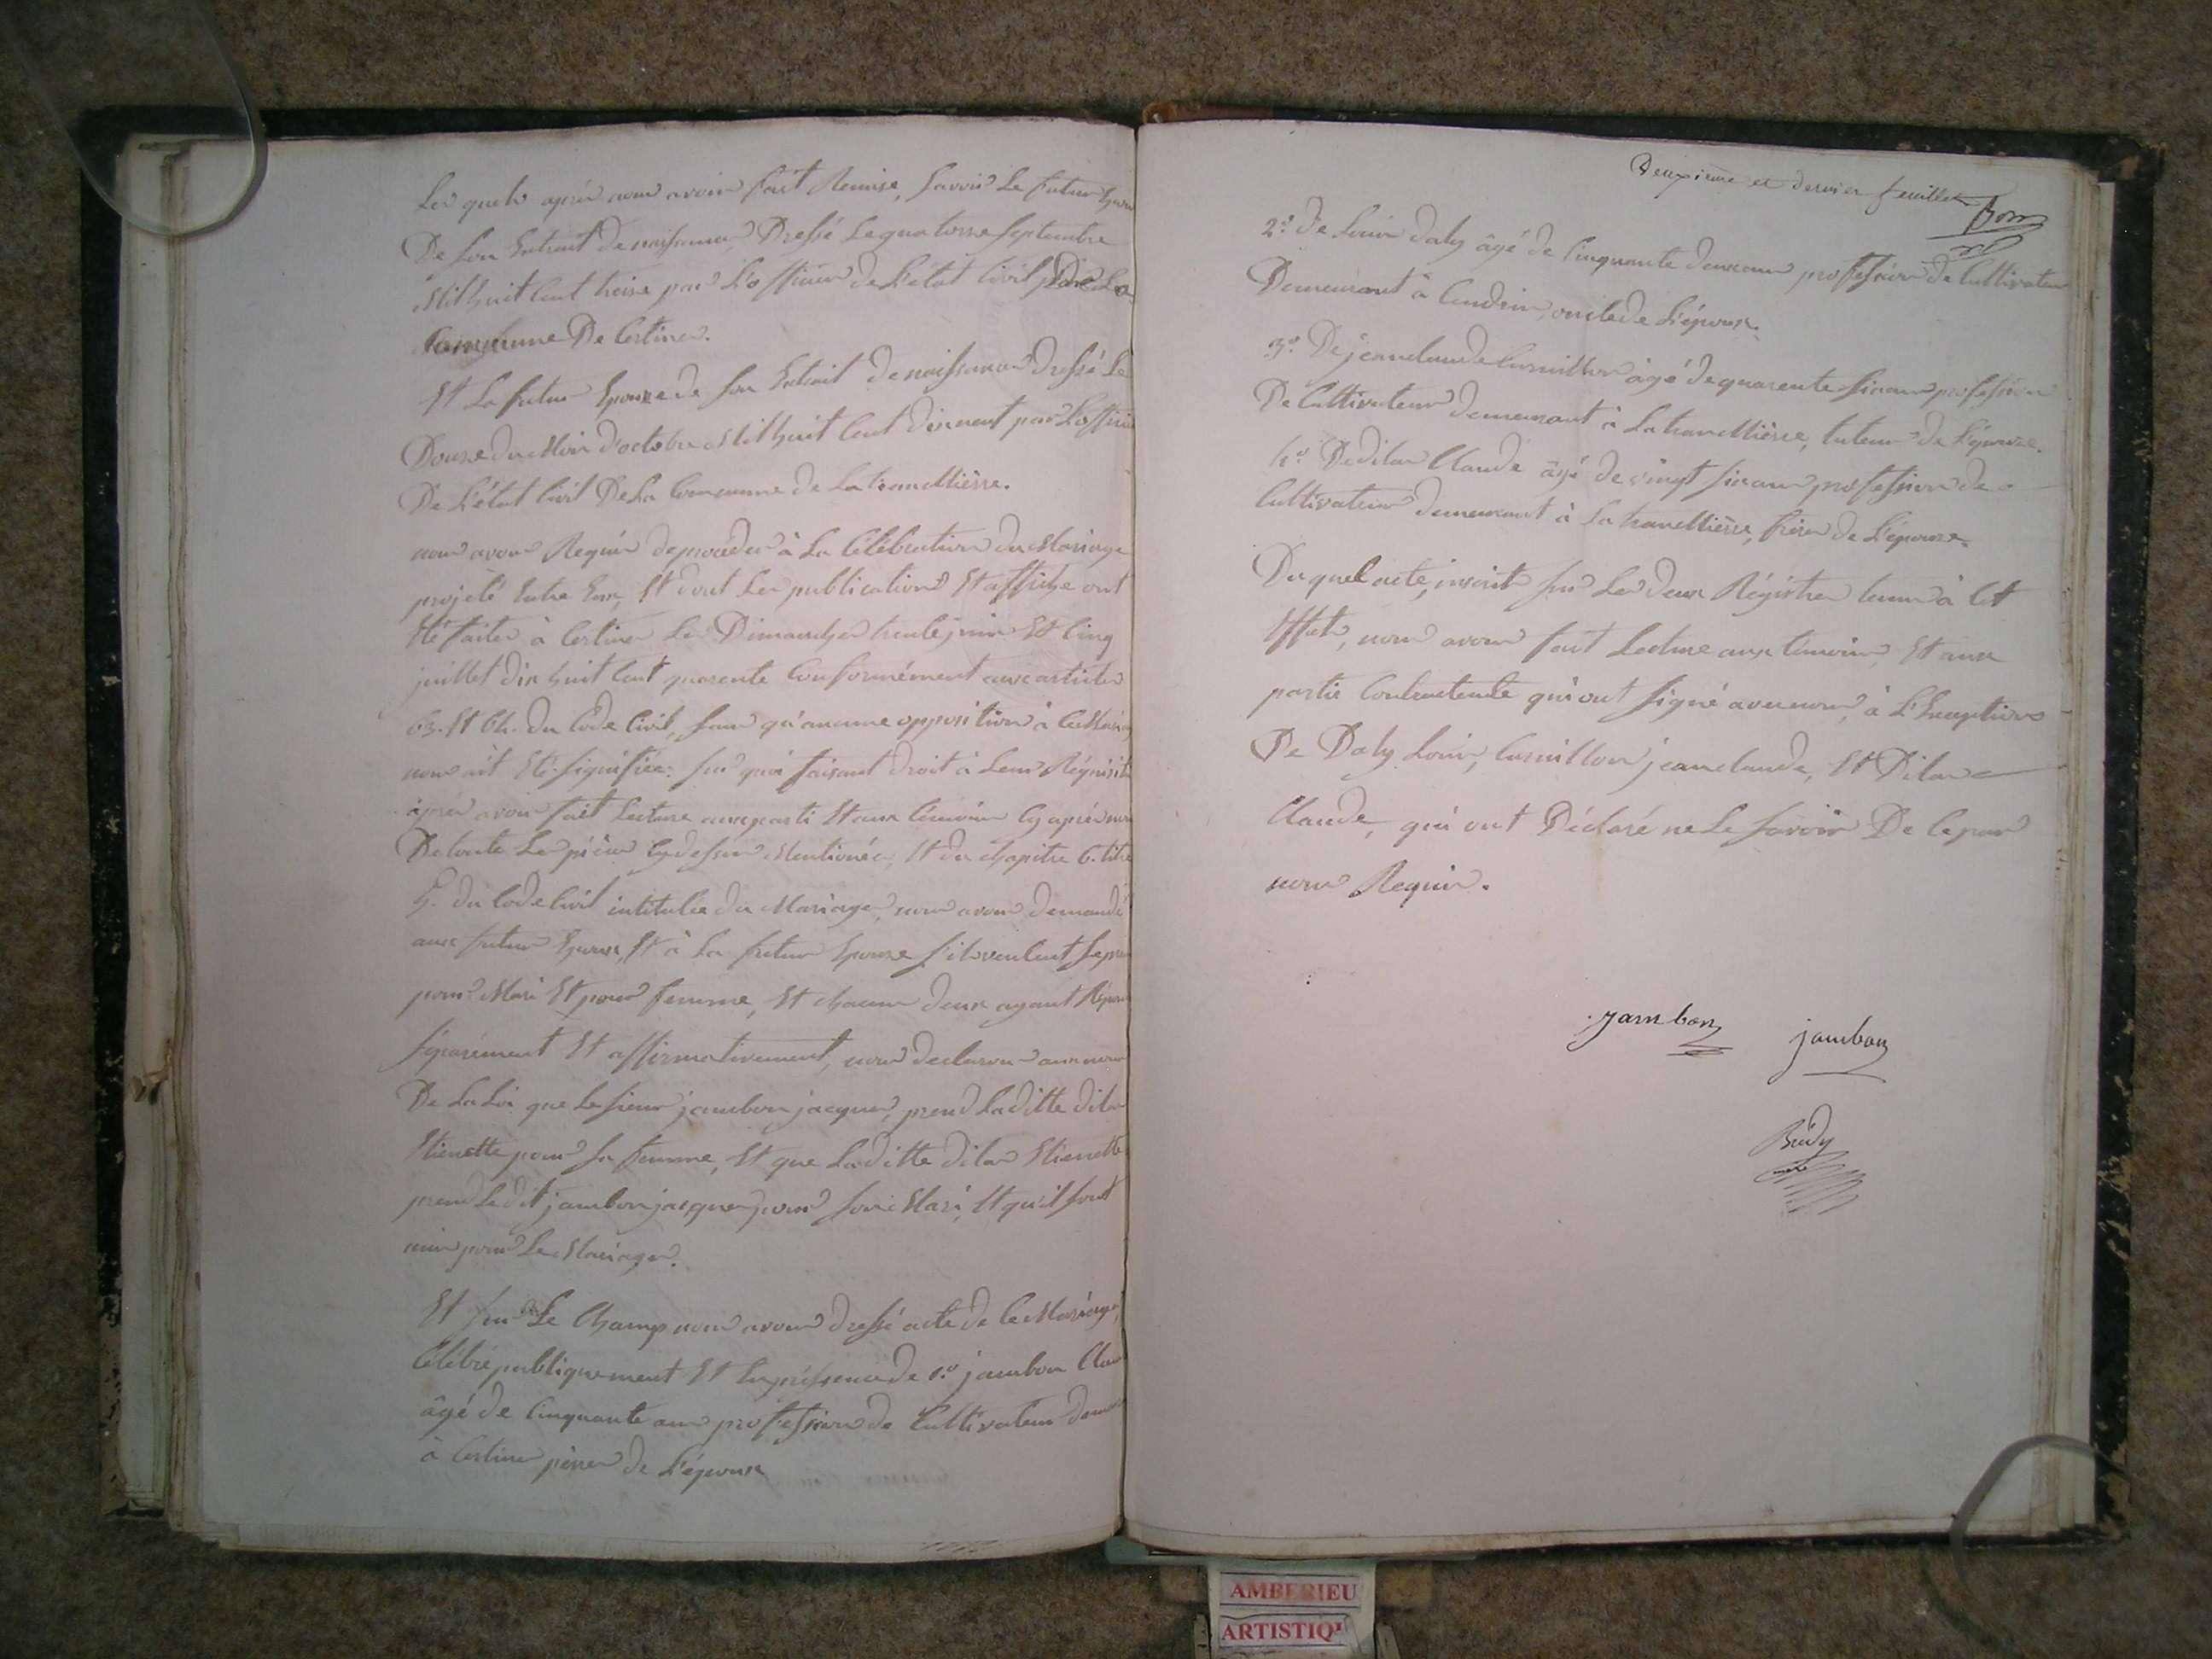 Les quels après nous avoir fait Remise, Savoir Le futur Epoux
De Son Extrait de naissance, Dressé Le quatorse Septembre
Mil huit Cent treise par L'officier de L'état Civil De La
Commune De Certines.
Et La futur Epouse de Son Extrait de naissance dressé Le
Douse du Mois d'octobre Mil huit Cent dixneuf par L'officier
De L'état Civil De La Commune de La tranclliere.
nous avons Requis de procéder à La Célébration du Mariage
projeté Entre Eux, Et dont Les publications Et affiche ont
Eté faites à Certines Les Dimanches trente juin Et Cinq
juillet dix huit Cent quarente Conformément aux articles
63. Et 64. du Code Civil, Sans qu'aucune opposition à Ce Mariage
nous ait Eté Signifiée; Sur quoi faisant droit à Leur Réquisition
après avoir fait Lecture aux parti Et aux témoins Cy après
De toute Les pièces Cy dessus Mentionées, Et du Chapitre 6. titre
5. du Code Civil intitulée du Mariage, nous avons demandé
aux futur Epoux, Et à La futur Epouse S'ils veulent Se
pour Mari Et pour femme, Et chacun deux ayant Répondu
Séparément Et affirmativement, nous declarons aux nom
De La Loi que Le Sieur jambon jacques, prend La ditte dilas
Etienette pour Sa femme, Et que La ditte dilas Etienette
prend Le dit jambon jacques pour Son Mari, Et qu'il Sont
unis pour Le Mariage.
Et Sur Le Champ nous avons dressé acte de Ce Mariage,
Célébré publiquement Et En présence de 1.º jambon Claude
âgé de Cinquante ans profession de Cultivateur
à Certines père de L'époux
Deuxième et dernier feuillet
2.º De Louis daly âgé de Cinquante deux ans profession de Cultivateur
Demeurant à Ceudrin, oncle de L'époux.
3.º De jean claude Curnillon âgé de quarente Six ans profession
De Cultivateur demeurant à La tranclliere, tuteur de L'épouse.
4.º De dilas Claude âgé de vingt Six ans profession de
Cultivateur demeurant à La tranclliere, frère de L'épouse.
Du quel acte, inscrit Sur Les deux Régistres tenus à Cet
Effet, nous avons fait Lecture aux témoins, Et aux
partie Contractente qui ont Signé avec nous, à L'Exception
De Daly Louis, Curnillon jean claude, Et Dilas
Claude, qui ont Déclaré ne Le Savoir De Ce par
nous Requis.
jambon jambon
Bridy
maire
AMBERIEU
ARTISTIQ